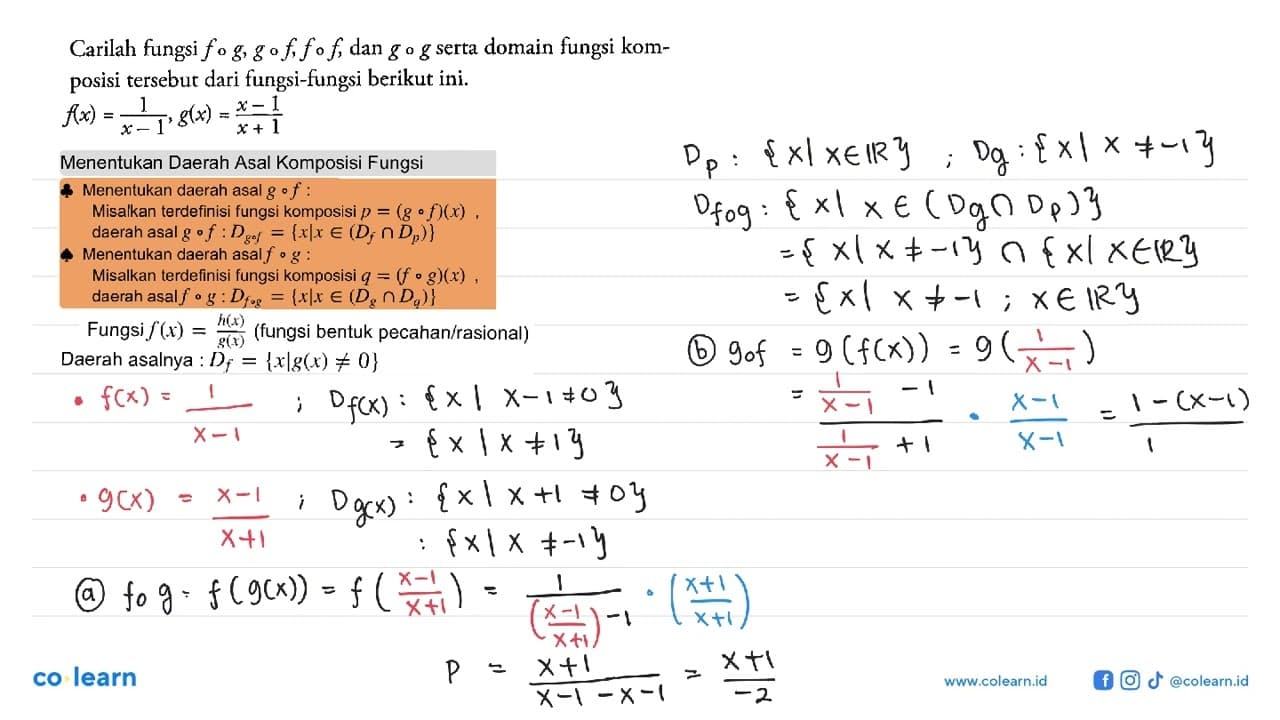 Carilah fungsi f ∘ g, g ∘ f, f ∘ f, dan g ∘ g serta domain fungsi kom-
posisi tersebut dari fungsi-fungsi berikut ini.
f(x) = 1/(x - 1), g(x) = (x - 1)/(x + 1)
Menentukan Daerah Asal Komposisi Fungsi
♣ Menentukan daerah asal g ∘ f :
Misalkan terdefinisi fungsi komposisi p = (g ∘ f)(x) ,
daerah asal g ∘ f : D_{g∘f} = {x|x ∈ (D_f ∩ D_p)}
♠ Menentukan daerah asal f ∘ g :
Misalkan terdefinisi fungsi komposisi q = (f ∘ g)(x) ,
daerah asal f ∘ g : D_{f∘g} = {x|x ∈ (D_g ∩ D_q)}
Fungsi f(x) = h(x)/g(x) (fungsi bentuk pecahan/rasional)
Daerah asalnya : D_f = {x|g(x) ≠ 0}
• f(x) = 1/(x-1) ; D_{f(x)} : {x | x-1 ≠ 0}
= {x | x ≠ 1}
• g(x) = (x-1)/(x+1) ; D_{g(x)} : {x | x+1 ≠ 0}
: {x | x ≠ -1}
(a) fog = f(g(x)) = f((x-1)/(x+1)) = 1/(((x-1)/(x+1)) -1) • ((x+1)/(x+1))
P = (x+1)/(x-1-x-1) = (x+1)/(-2)
D_p : {x | x ∈ IR} ; D_g : {x | x ≠ -1}
D_{fog} : {x | x ∈ (D_g ∩ D_p)}
= {x | x ≠ -1} ∩ {x | x ∈ IR}
= {x | x ≠ -1 ; x ∈ IR}
(b) gof = g(f(x)) = g(1/(x-1))
= (1/(x-1) - 1)/(1/(x-1) + 1) • (x-1)/(x-1) = (1-(x-1))/1
co learn
www.colearn.id
@colearn.id